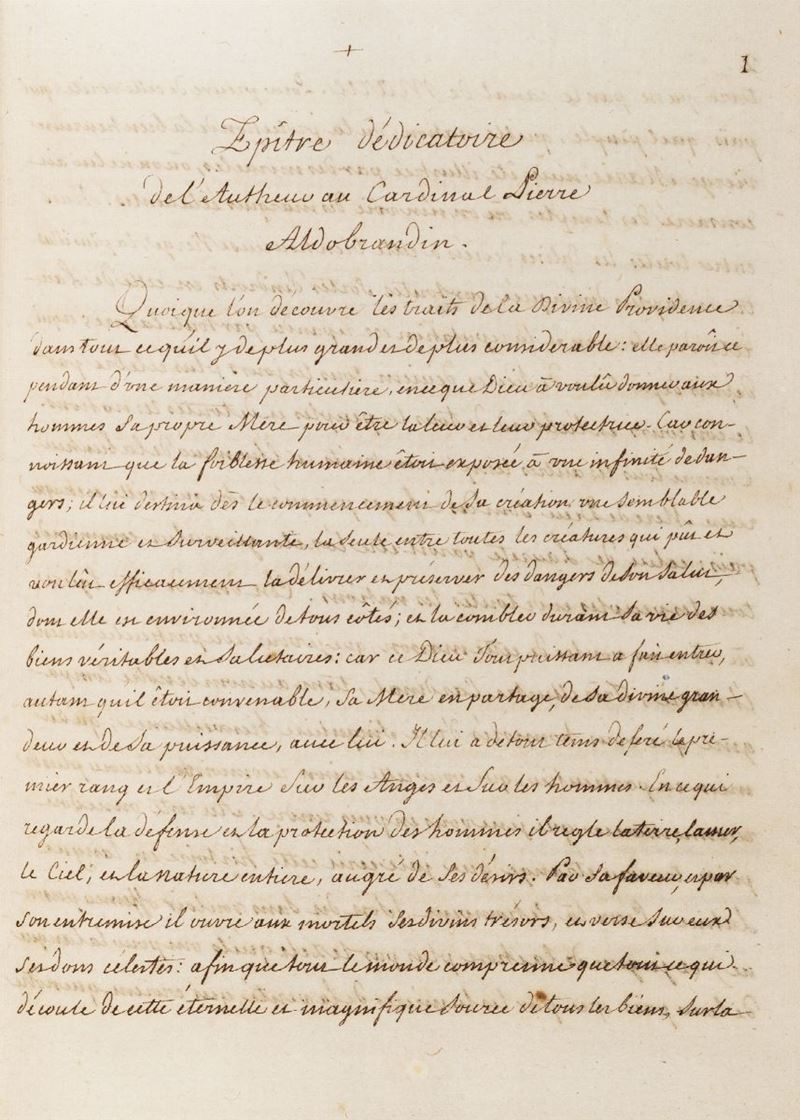 +
1
Epître dédicatoire
de l'Autheur au Cardinal Pierre
Aldobrandin.
Quoique l'on decouvre les traits de la Divine Providence
dans tout ce qu'il y de plus grand et de plus considerable : elle paroît ce
pendant d'une maniére particuliére, en ce que Dieu à voulû donner aux
hommes sa propre Mére pour être la leur et leur protectrice. Car con-
noissant que la foiblesse humaine êtoit exposée à une infinité de dan-
gers ; il lui destina dès le commencement de sa création une semblable
gardienne et surveillante, la seule entre toutes les créatures qui pût et
voulût efficacement la délivrer et préserver des dangers de son salut,
dont elle est environnée de tous côtés ; et la combler durant sa vie des
biens véritables et salutaires : car ce Dieu Tout puissant a fait entrer,
autant qu'il êtoit convenable, sa Mére en partage, de sa divine gran-
deur et de sa puissance, avec lui. Il lui a de tout tems deferé le pre-
mier rang et l'Empire sur les Anges et sur les hommes. En ce qui
regarde la défense et la protection des hommes il regle la terre, la mer,
le Ciel, et la nature entiere, au gré de ses désirs. Par sa faveur, et par
son entremise il ouvre aux mortels ses divins trésors, et verse sur eux
ses dons celestes : afin que tout le monde comprenne que tout ce qui
découle de cette éternelle et magnifique source de tous les biens, sur la